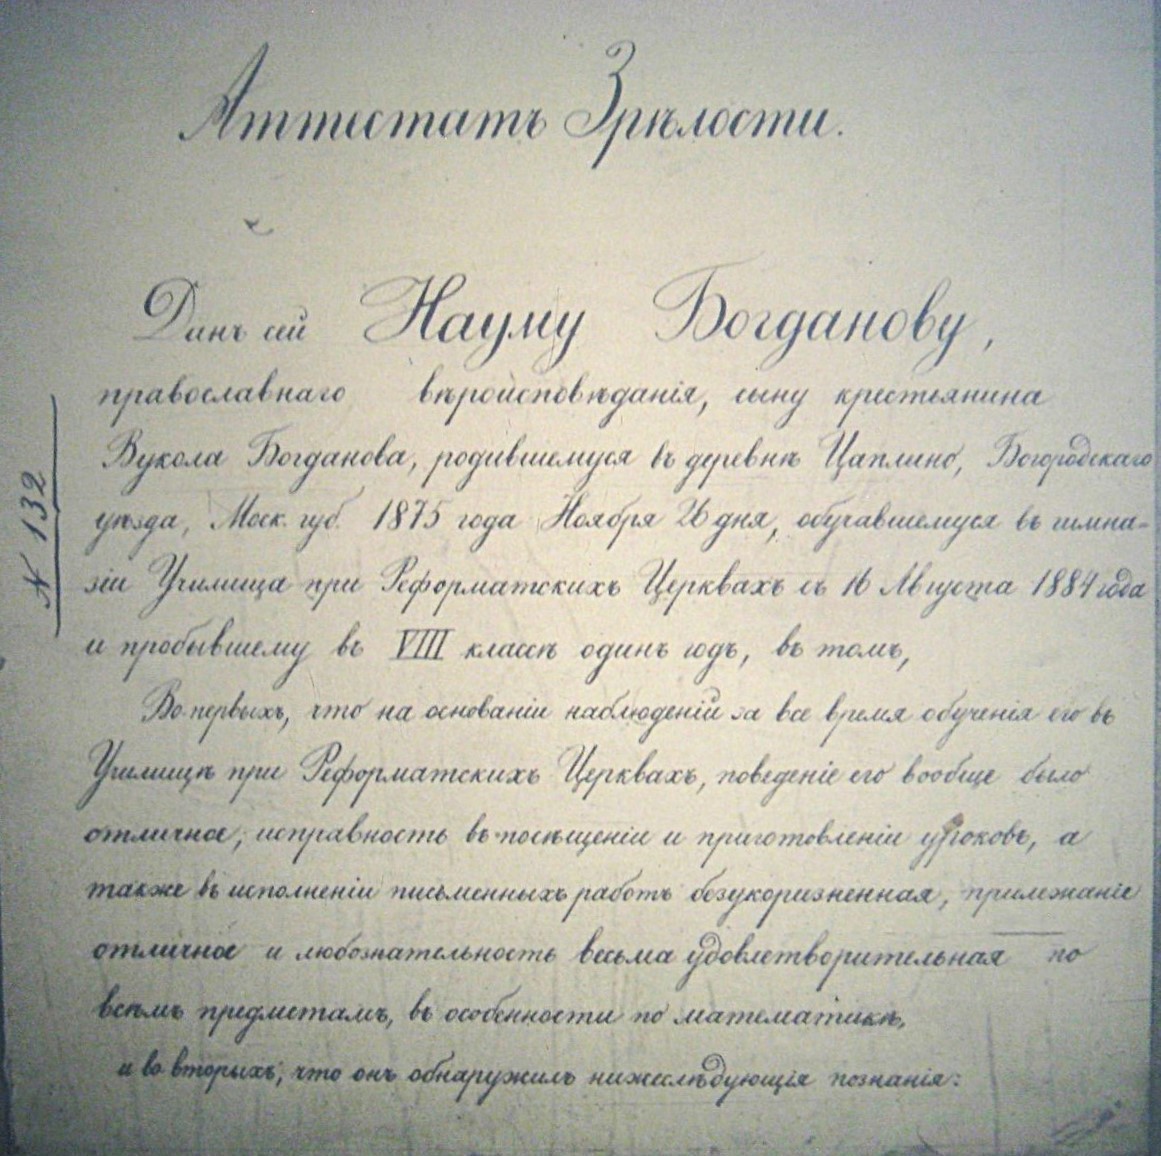 Аттестатъ Зрѣлости.
Данъ сей Науму Богданову,
православнаго вѣроисповѣданія, сыну крестьянина
Вукола Богданова, родившемуся въ деревнѣ Цаплино, Богородскаго
уѣзда, Моск. губ. 1875 года Ноября 26 дня, обучавшемуся въ гимна-
зіи Училища при Реформатскихъ Церквахъ съ 16 Августа 1884 года
и пробывшему въ VIII классѣ одинъ годъ, въ томъ,
Во-первыхъ, что на основаніи наблюденій за все время обученія его въ
Училищѣ при Реформатскихъ Церквахъ, поведеніе его вообще было
отличное, исправность въ посѣщеніи и приготовленіи уроковъ, а
также въ исполненіи письменныхъ работъ безукоризненная, прилежаніе
отличное и любознательность весьма удовлетворительная по
всѣмъ предметамъ, въ особенности по математикѣ,
и во вторыхъ, что онъ обнаружилъ нижеслѣдующія познанія:
N 132